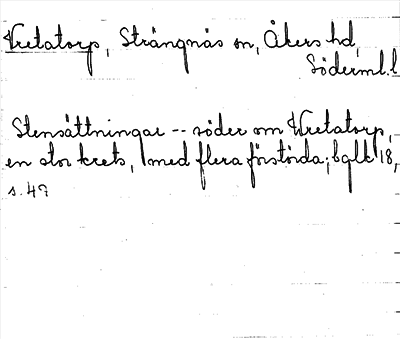 Vretatorp, Strängnäs sn, Åkers hd,
Söderml. l
Stensättningar -- söder om Vretatorp,
en stor krets, med flera förstörda; bglk 18,
s. 49